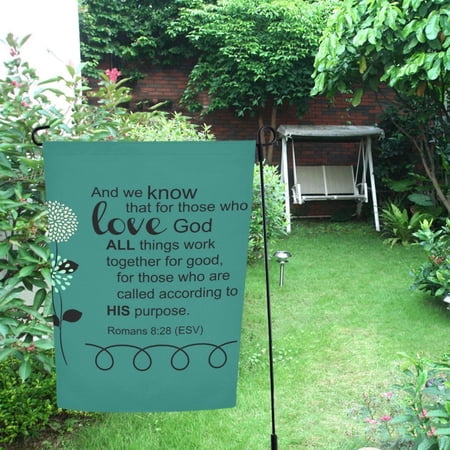 And we know
that for those who
love God
ALL things work
together for good,
for those who are
called according to
HIS purpose.
Romans 8:28 (ESV)